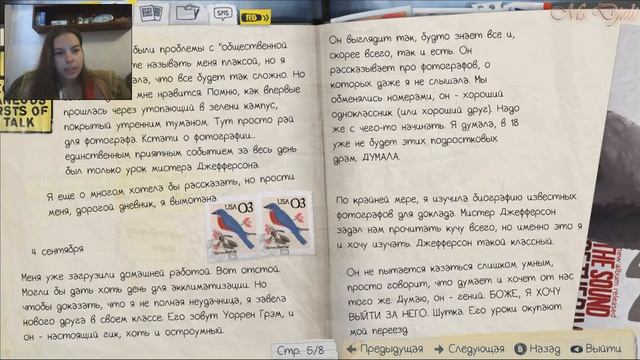 SMS
RB
Ms. Дум
были проблемы с "общественной
те называть меня плаксой, но я
ала, что все будет так сложно. Но
мне нравится. Помню, как впервые
прошлась через утопающий в зелени кампус,
покрытый утренним туманом. Тут просто рай
для фотографа. Кстати о фотографии...
единственным приятным событием за весь день
был только урок мистера Джефферсона.
Я еще о многом хотела бы рассказать, но прости
меня, дорогой дневник, я вымотана.
USA 03
USA 03
4 сентября
Меня уже загрузили домашней работой. Вот отстой.
Могли бы дать хоть день для акклиматизации. Но
чтобы доказать, что я не полная неудачница, я завела
нового друга в своем классе. Его зовут Уоррен Грэм, и
он - настоящий гик, хоть и остроумный.
RSTS OF
TALK
Он выглядит так, будто знает все и,
скорее всего, так и есть. Он
рассказывает про фотографов, о
которых даже я не слышала. Мы
обменялись номерами, он - хороший
одноклассник (или хороший друг). Надо
же с чего-то начинать. Я думала, в 18
уже не будет этих подростковых
драм. ДУМАЛА.
По крайней мере, я изучила биографию известных
фотографов для доклада. Мистер Джефферсон
задал нам прочитать кучу всего, но именно это я
и хочу изучать. Джефферсон такой классный.
Он не пытается казаться слишком умным,
просто говорит, что думает и хочет от нас
того же. Думаю, он - гений. БОЖЕ, Я ХОЧУ
ВЫЙТИ ЗА НЕГО. Шутка. Его уроки окупают
мой переезд.
THE SOUND
Стр. 5/8
Предыдущая
Следующая
B Назад
Выйти